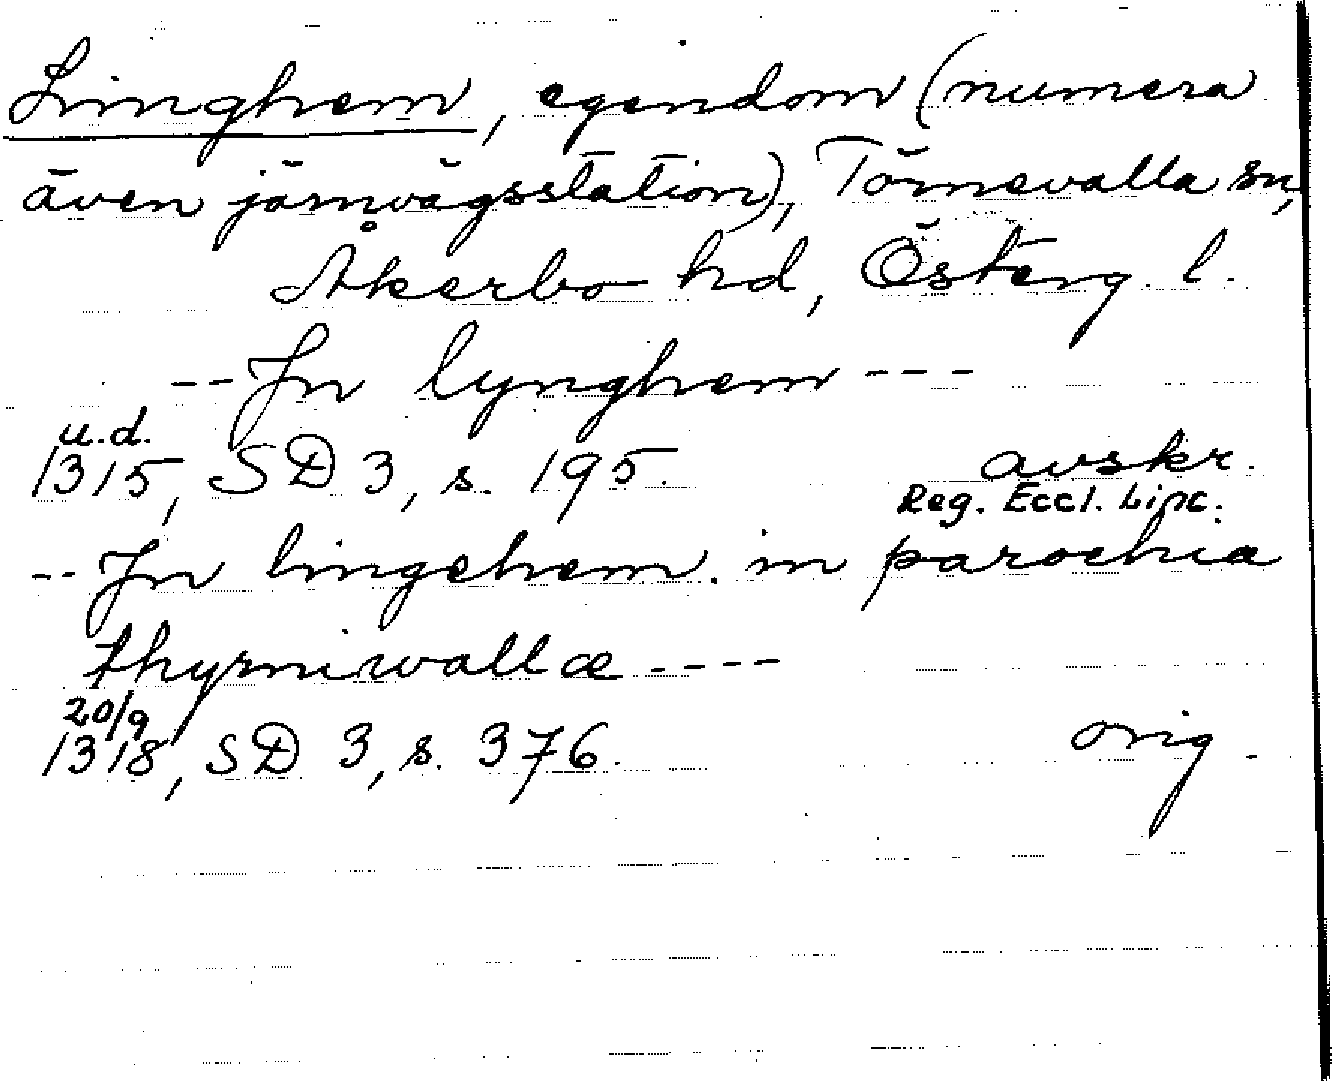 Linghem, egendom (numera
även järnvägsstation), Törnevalla sn,
Åkerbo hd, Österg. l.
-- Jn lynghem ---
u.d.
1315, SD 3, s. 195. avskr.
Reg. Eccl. Linc.
-- Jn lingehem. in parochia
thyrniwallæ ----
20/9
1318, SD 3, s. 376. orig.